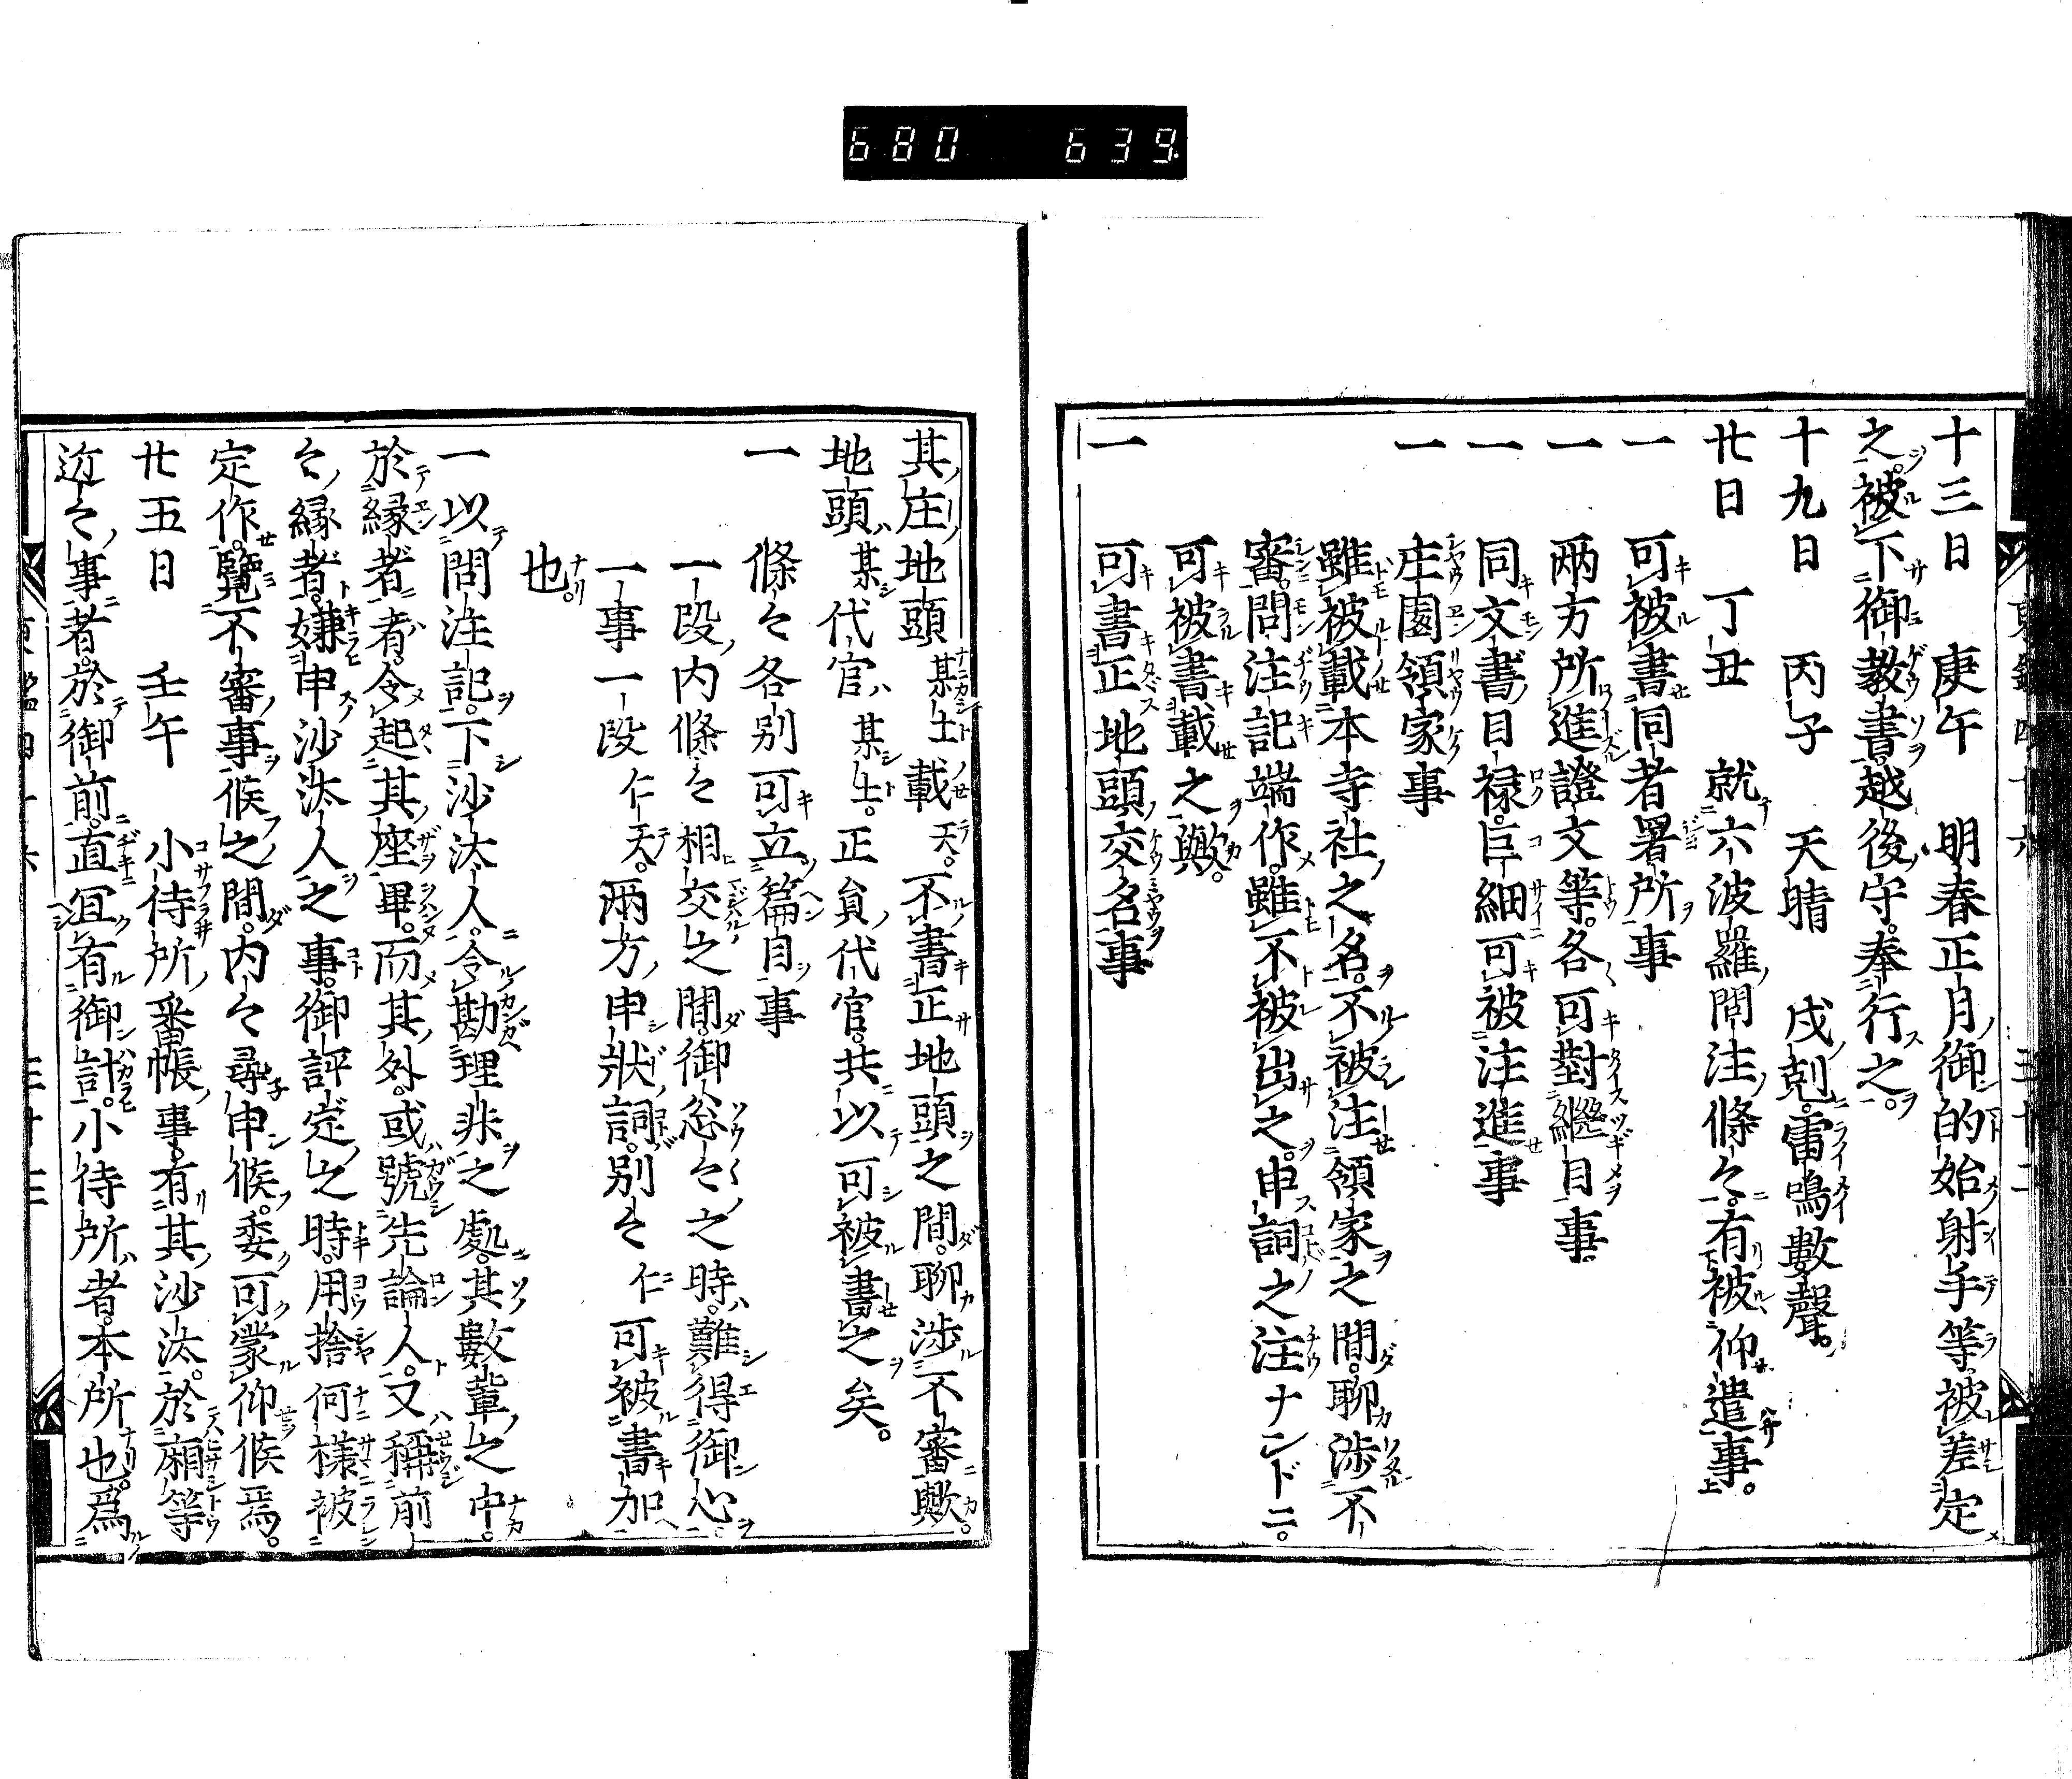 680 639
十三日 庚午 明春正月御的始射手等被差定
之被下御教書越後守奉行之
十九日 丙子 天晴 戌剋雷鳴數聲
廿日 丁丑 就六波羅問注條々有被仰遣事
一 可被書同者署所事
一 兩方所進證文等各可對繼目事
一 同文書目祿巨細可被注進事
一 庄園領家事
雖被載本寺社之名不被注領家之間聊涉不
審問注記端作雖不被出之申詞之注ナンドニ
可被書載之歟
一 可書正地頭交名事
其庄地頭某土載天不書正地頭之間聊涉不審歟
地頭某代官某土正員代官共以可被書之矣
一 條々各別可立篇目事
一段內條々相交之間御忩々之時難得御心
一事一段仁天兩方申狀詞別々仁可被書加
也
一 以問注記下沙汰人令勘理非之處其數輩之中
於緣者者令起其座畢而其外或號先論人又稱前
々緣者嫌申沙汰人之事御評定之時用捨何樣被
定作覽不審事候之間內々尋申候委可蒙仰候焉
廿五日 壬午 小侍所番帳事有其沙汰於廂等
近々事者於御前直宜有御計小侍所者本所也爲